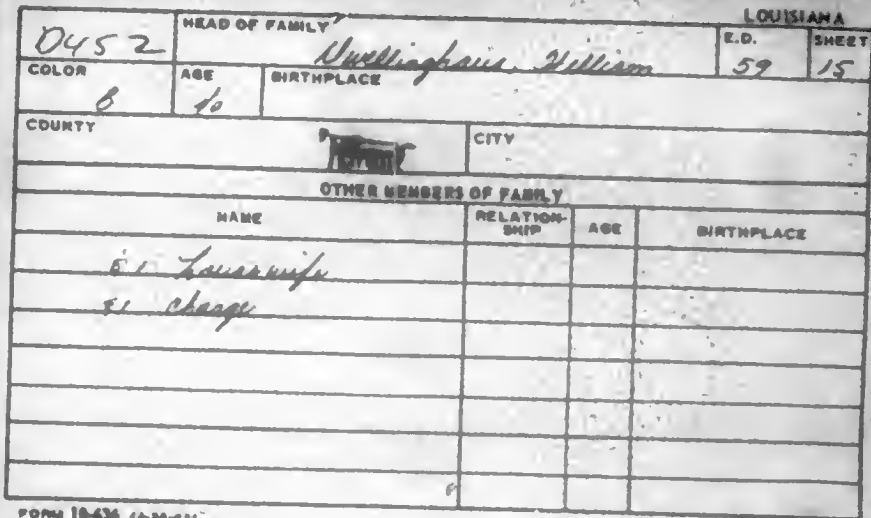 LOUISIANA
0452
HEAD OF FAMILY
Dwellinghaus, William
E.D.
59
SHEET
15
COLOR
B
AGE
40
BIRTHPLACE
COUNTY
CITY
OTHER MEMBERS OF FAMILY
NAME
RELATION-SHIP
AGE
BIRTHPLACE
housewife
charge
FORM 10-636